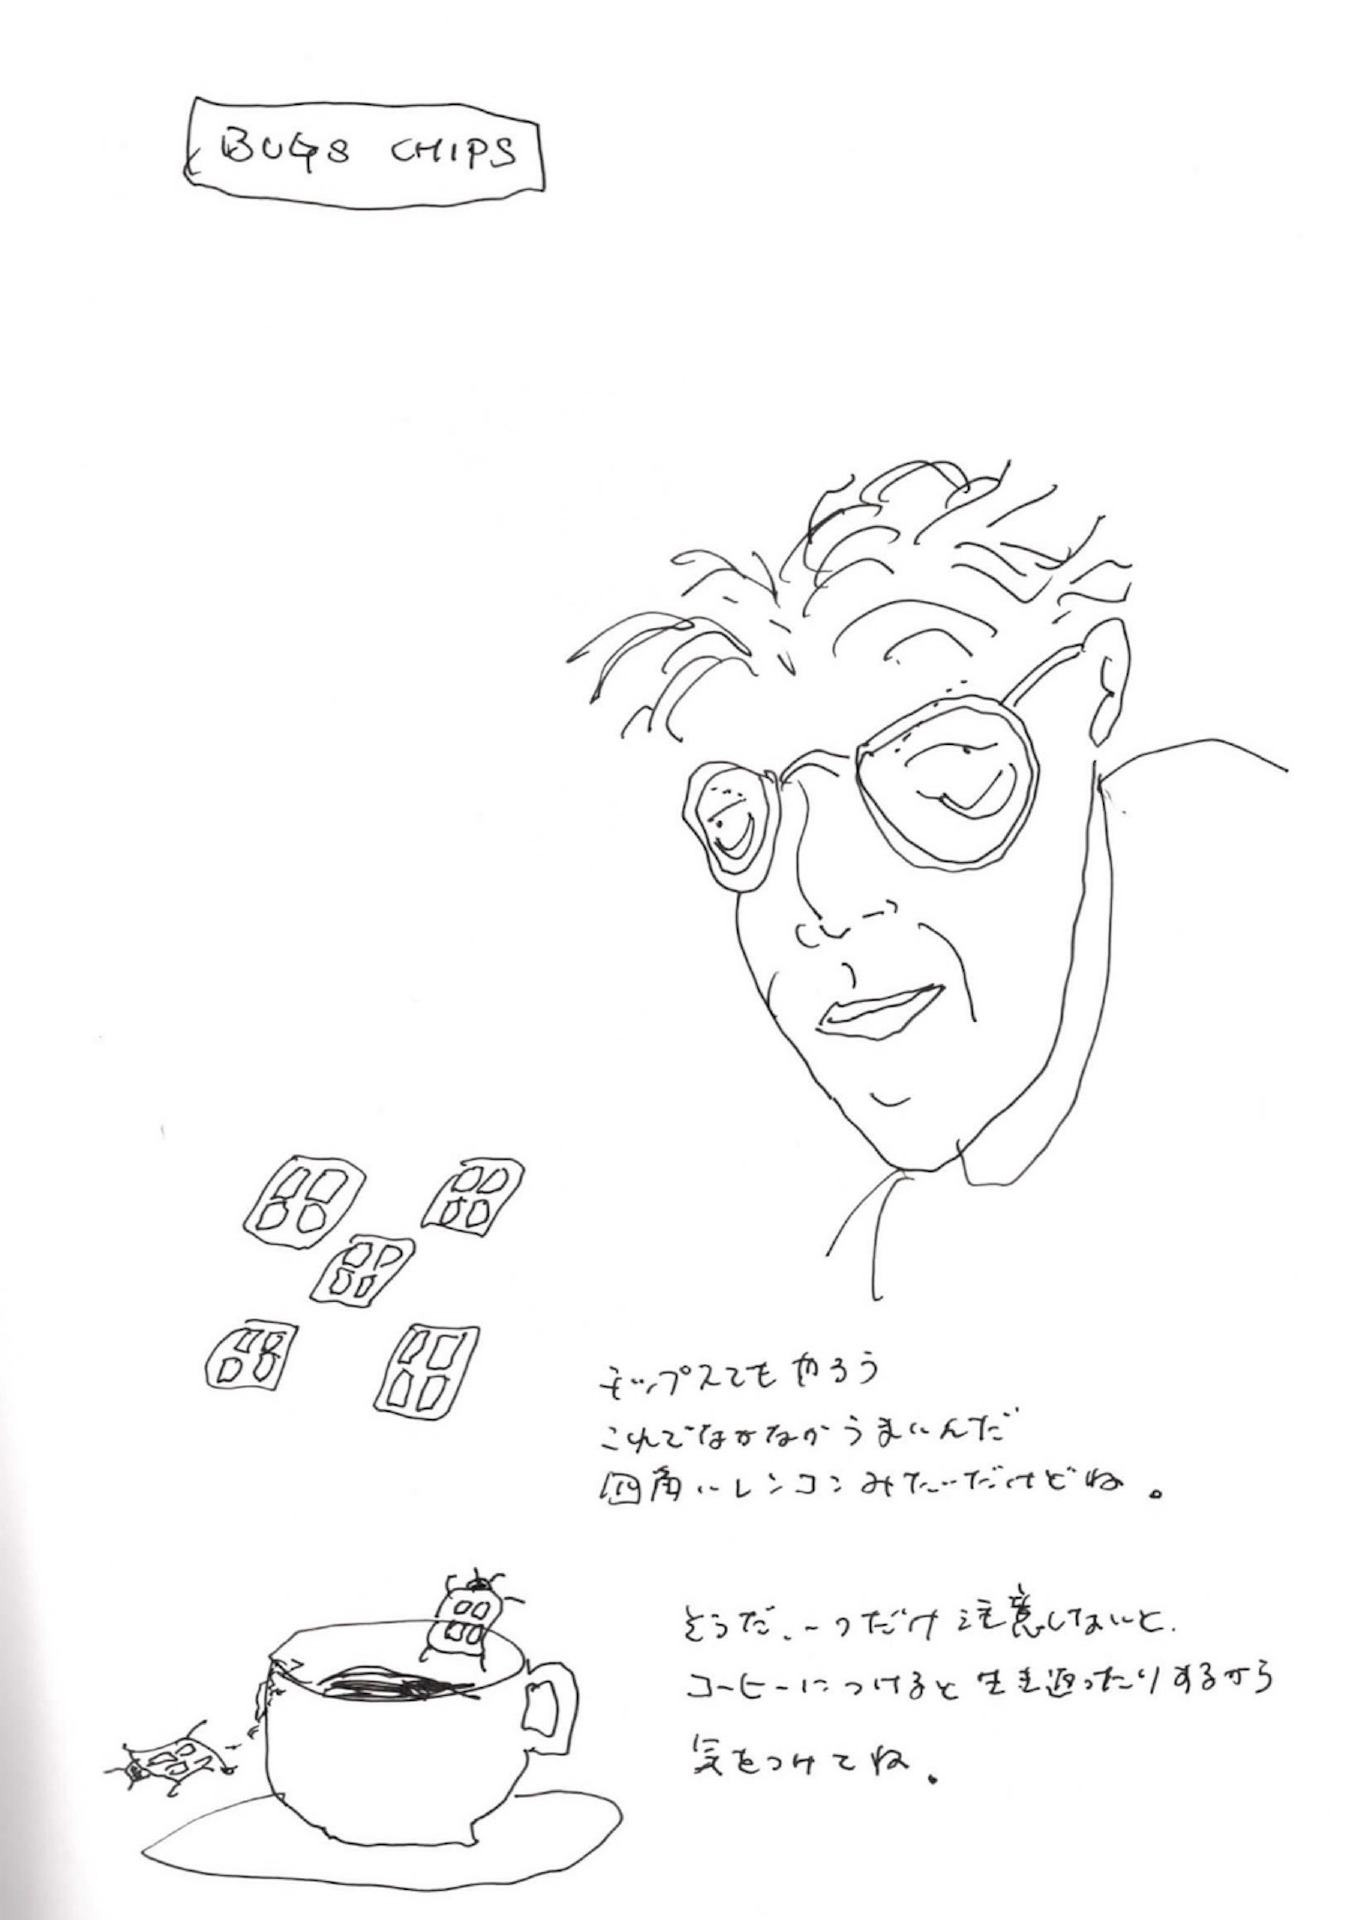 BUGS CHIPS
チップスでもやろう
これでなかなかうまいんだ
四角いレンコンみたいだけどね。
そうだ、一つだけ注意しないと、
コーヒーにつけると生き返ったりするから
気をつけてね。